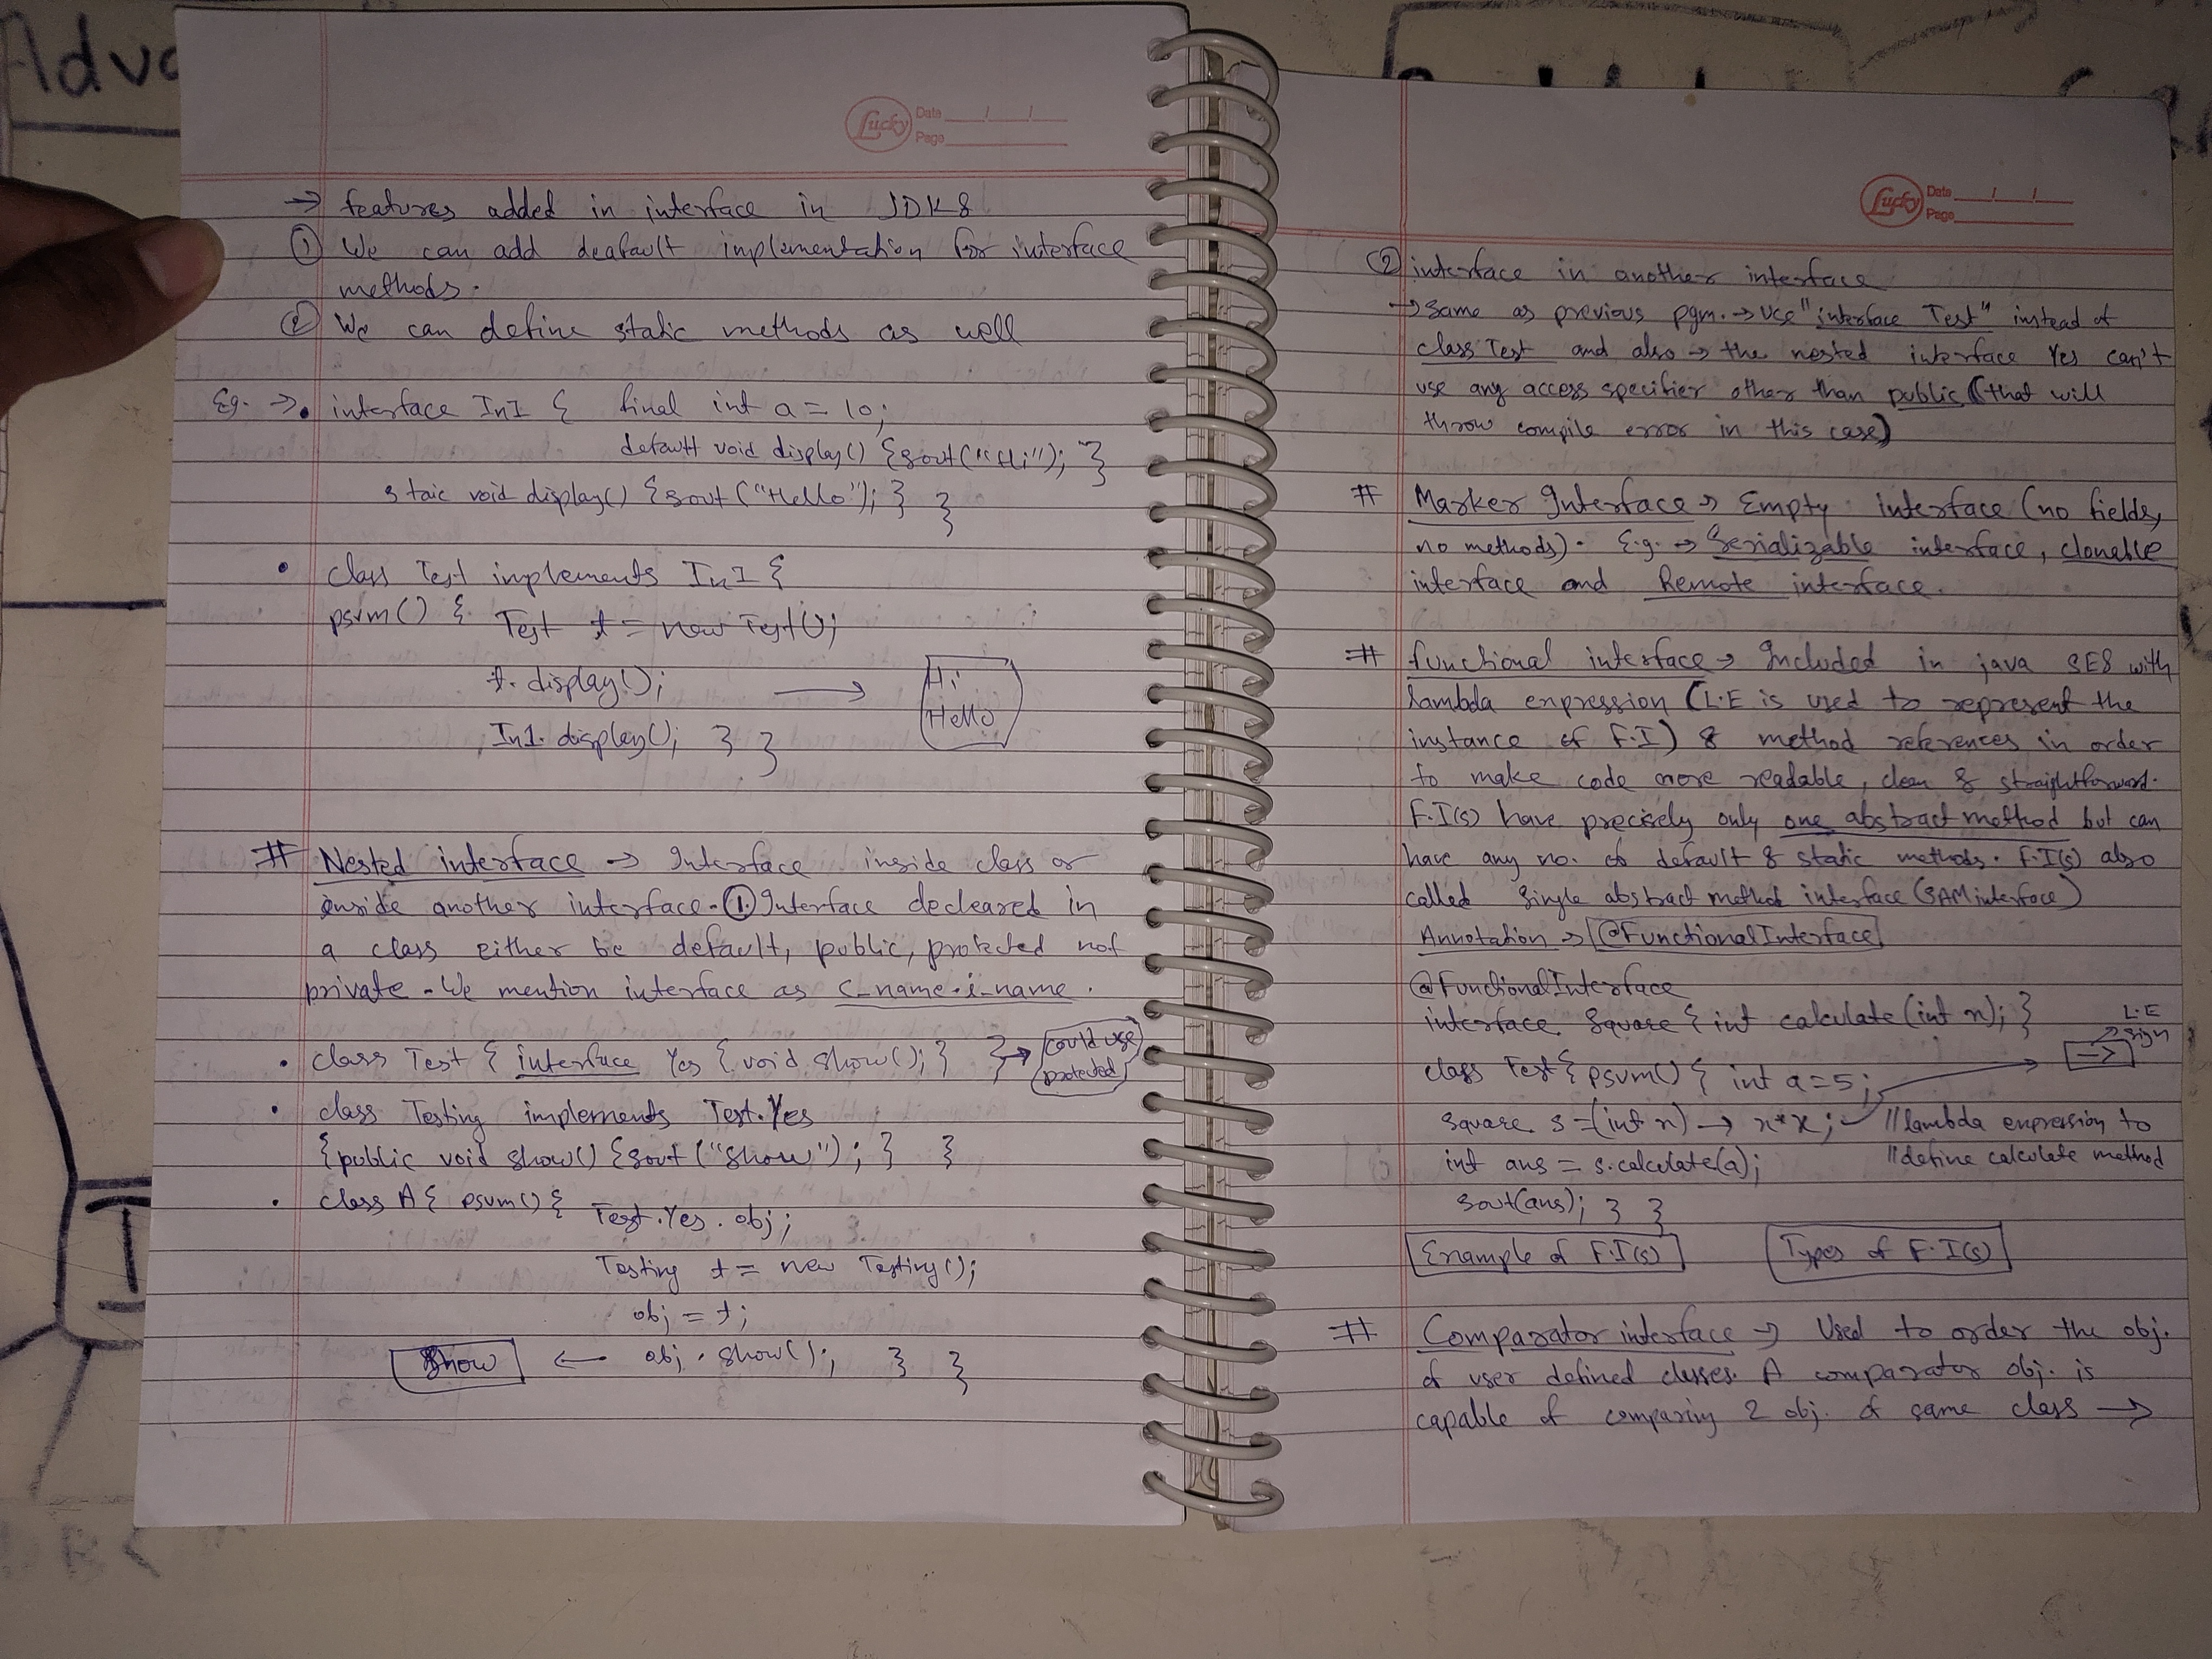 Adva
Lucky Date / /
Page
→ features added in interface in JDK8
① We can add deafault implementation for interface
methods.
② We can define static methods as well
Eg. → • interface In1 { final int a = 10;
default void display() {sout("Hi"); }
staic void display() {sout ("Hello"); } }
• class Test implements In1 {
psvm() { Test t = new Test();
t. display();
→ Hi
Hello
In1. display(); } }
# Nested interface → Interface inside class or
inside another interface. ①. Interface decleared in
a class either be default, public, protected not
private. We mention interface as c_name.i_name.
• class Test { interface Yes { void show(); } } → could use
protected
• class Testing implements Test.Yes
{public void show() {sout ("Show"); } }
• class A { psvm() { Test.Yes. obj;
Testing t = new Testing();
obj = t;
Show ← obj. show(); } }
Lucky Date / /
Page
② interface in another interface
→ Same as previous pgm. → Use "interface Test" instead of
class Test and also → the nested interface Yes can't
use any access specifier other than public (that will
throw compile error in this case)
# Marker Interface → Empty interface (no fields,
no methods). E.g. → Serializable interface, clonable
interface and Remote interface.
# functional interface → Included in java SE8 with
lambda expression (L.E is used to represent the
instance of F.I) & method references in order
to make code more readable, clean & straightforward.
F.I(s) have precisely only one abstract method but can
have any no. of default & static methods. F.I(s) also
called Single abstract method interface (SAM interface)
Annotation → @FunctionalInterface
@FunctionalInterface
interface Square { int calculate (int x); }
L.E
sign
class Test { psvm() { int a = 5; →
Square s = (int x) → x*x; //lambda expression to
int ans = s.calculate(a); //define calculate method
sout(ans); } }
Example of F.I(s) Types of F.I(s)
# Comparator interface → Used to order the obj.
of user defined classes. A comparator obj. is
capable of comparing 2 obj. of same class →